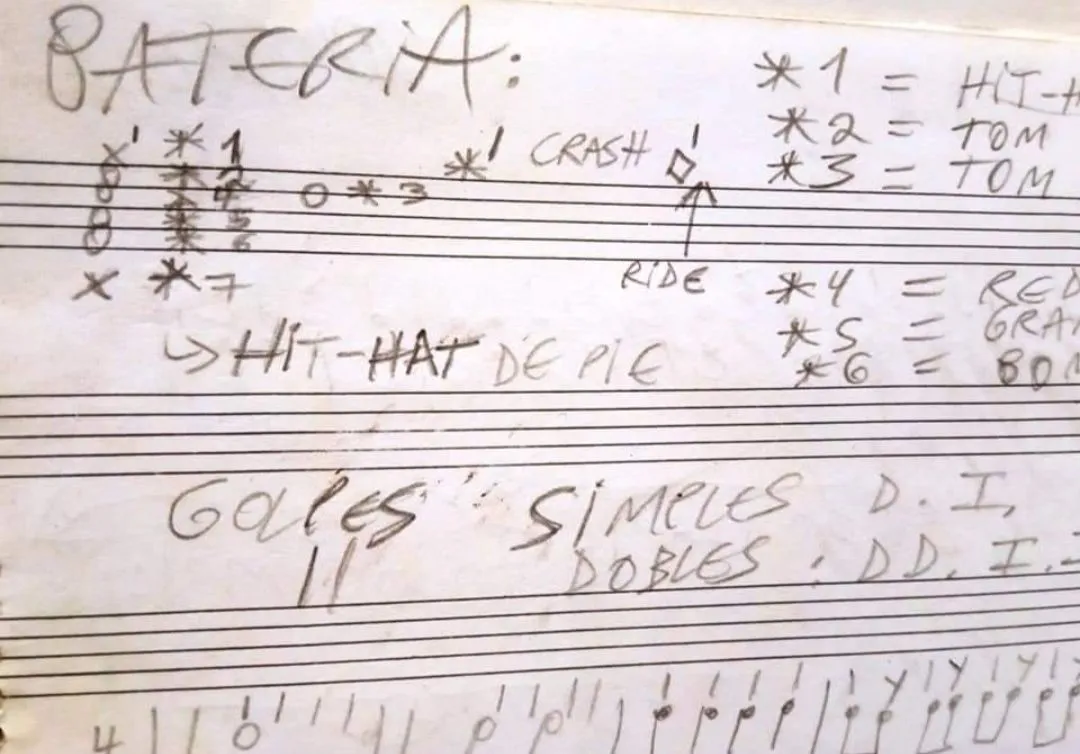 BATERIA:
*1 = HIT-H
*2 = TOM
*3 = TOM
x' *1
*' CRASH
*2
*4
o *3
*5
*6
x *7
RIDE
*4 = RED
*5 = GRAN
*6 = BOM
↳ HIT-HAT DE PIE
GOLPES SIMPLES D. I.
DOBLES : DD. I.I
4